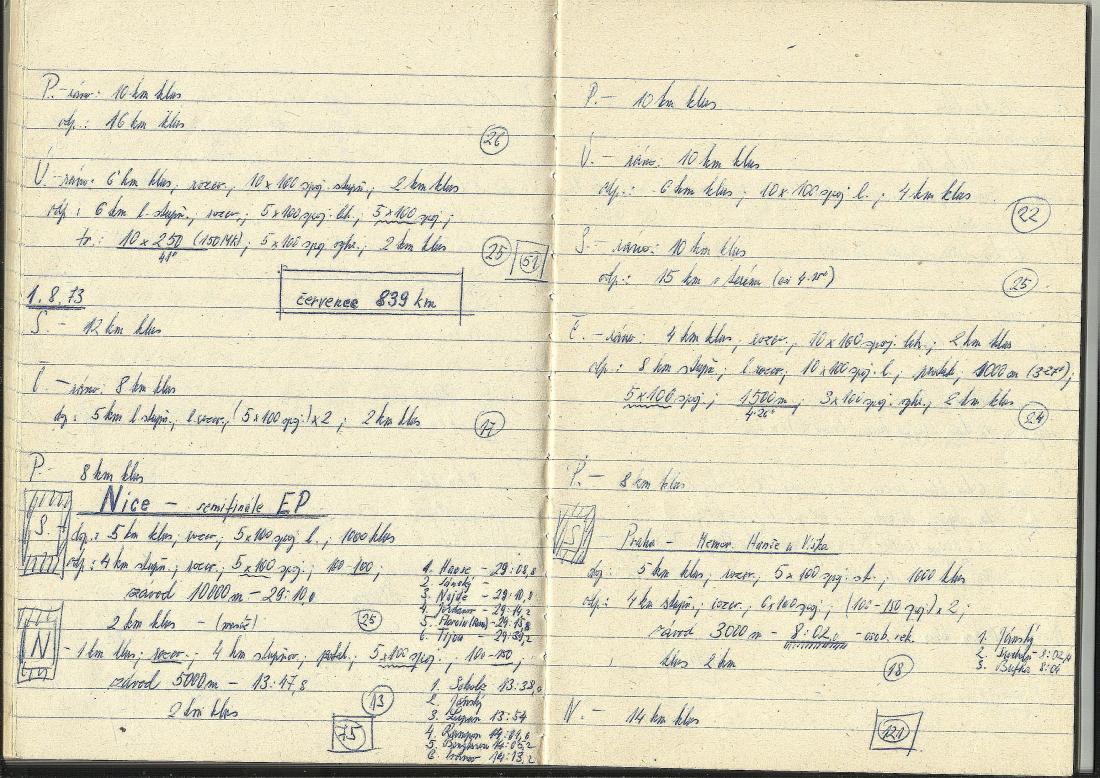 P. - ráno: 10 km klus
odp.: 16 km klus
26
Ú. - ráno: 6 km klus, rozcv., 10 x 100 spoj. stupň., 2 km klus
odp.: 6 km l. stupň., rozcv., 5 x 100 spoj. leh., 5 x 100 spoj.,
tr.: 10 x 250 (150 MK), 5 x 100 spoj. 2 km klus
41"
25 51
1.8.73
červenec 839 km
S. - 12 km klus
Č. - ráno: 8 km klus
dop.: 5 km l. stupň., l. rozcv., (5 x 100 spoj.) x 2, 2 km klus
17
P. - 8 km klus
Nice - semifinále EP
S.
dop.: 5 km klus, rozcv., 5 x 100 spoj. l., 1000 klus
odp.: 4 km stupň., rozcv., 5 x 100 spoj., 100-100;
závod 10000 m - 29:10,0
2 km klus -
25
1. Haase - 29:08,8
2. Jánský -
3. Najde - 29:10,8
4. 29:14,2
5. 29:15,8
6. Tijou - 29:39,2
N
- 1 km klus, rozcv. - 4 km stupňov., protah., 5 x 100 spoj., 100-150,
závod 5000 m - 13:47,8
2 km klus
13
75
1. 13:38,0
2. Jánský
3. Zupan 13:54
4. 14:01,0
5. 14:05,2
6. 14:13,2
P. - 10 km klus
Ú. - ráno: 10 km klus
odp.: 6 km klus, 10 x 100 spoj. l., 4 km klus
22
S. - ráno: 10 km klus
odp.: 15 km v terénu (asi 4.20")
25
Č. - ráno: 4 km klus, rozcv., 10 x 100 spoj. leh., 2 km klus
odp.: 8 km stupň., l. rozcv., 10 x 100 spoj. l., protah., 1000 m
5 x 100 spoj., 1500 m, 3 x 100 spoj. 2 km klus
4:20"
24
P. - 8 km klus
S
Praha - Memor. Hanče a Vrby
dop: 5 km klus, rozcv., 5 x 100 spoj. 1000 klus
odp.: 4 km stupň., rozcv., 6 x 100 spoj., (100-150 spoj) x 2;
závod 3000 m - 8:02,0 - osob. rek.
klus 2 km
18
1. Jánský
2. 8:02,4
3. 8:04
N. - 14 km klus
121